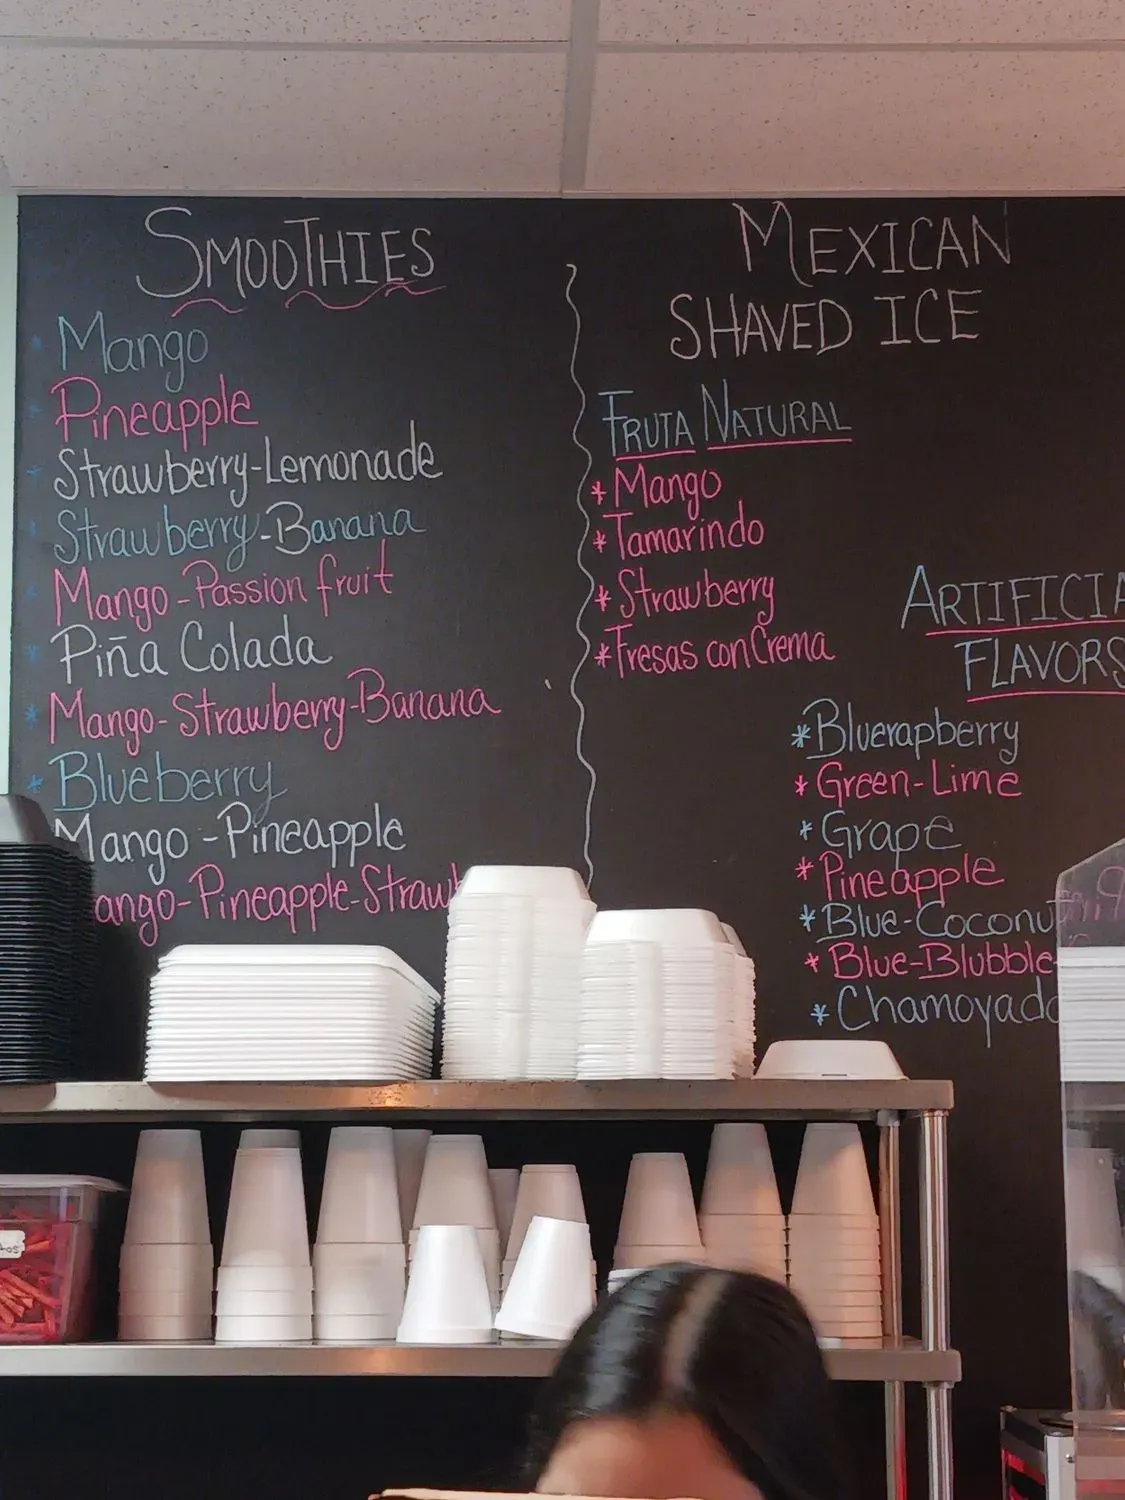 SMOOTHIES
Mango
Pineapple
Strawberry-Lemonade
Strawberry-Banana
Mango-Passion fruit
Piña Colada
Mango-Strawberry-Banana
Blueberry
Mango-Pineapple
ango-Pineapple-Strawb
MEXICAN
SHAVED ICE
FRUTA NATURAL
* Mango
* Tamarindo
* Strawberry
* Fresas con Crema
ARTIFICIA
FLAVORS
* Bluerapberry
* Green-Lime
* Grape
* Pineapple
* Blue-Coconut
* Blue-Blubble-
* Chamoyado